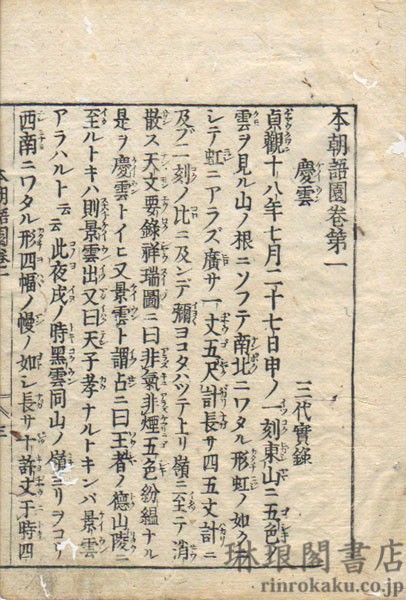 本朝語園卷第一
慶雲　三代實錄
貞觀十八年七月二十七日申ノ一刻東山ニ五色ノ
雲ヲ見ル山ノ根ニソフテ南北ニワタル形虹ノ如クニ
シテ虹ニアラズ廣サ一丈五尺計長サ四五丈計ニ
及ブ二刻ノ比ニ及ンデ彌ヨコタハツテ上リ嶺ニ至テ消
散ス天文要錄祥瑞圖ニ曰非氣非煙五色紛縕ナル
是ヲ慶雲トイヒ又景雲ト謂占ニ曰王者ノ德山陵ニ
至ルトキハ則景雲出又曰天子孝ナルトキンバ景雲
アラハルト云云此夜戌ノ時黑雲同山ノ嶺ヨリヲコリ
西南ニワタル形四幅ノ幔ノ如シ長サ十許丈于時四
本朝語園卷一
琳琅閣書店
rinrokaku.co.jp